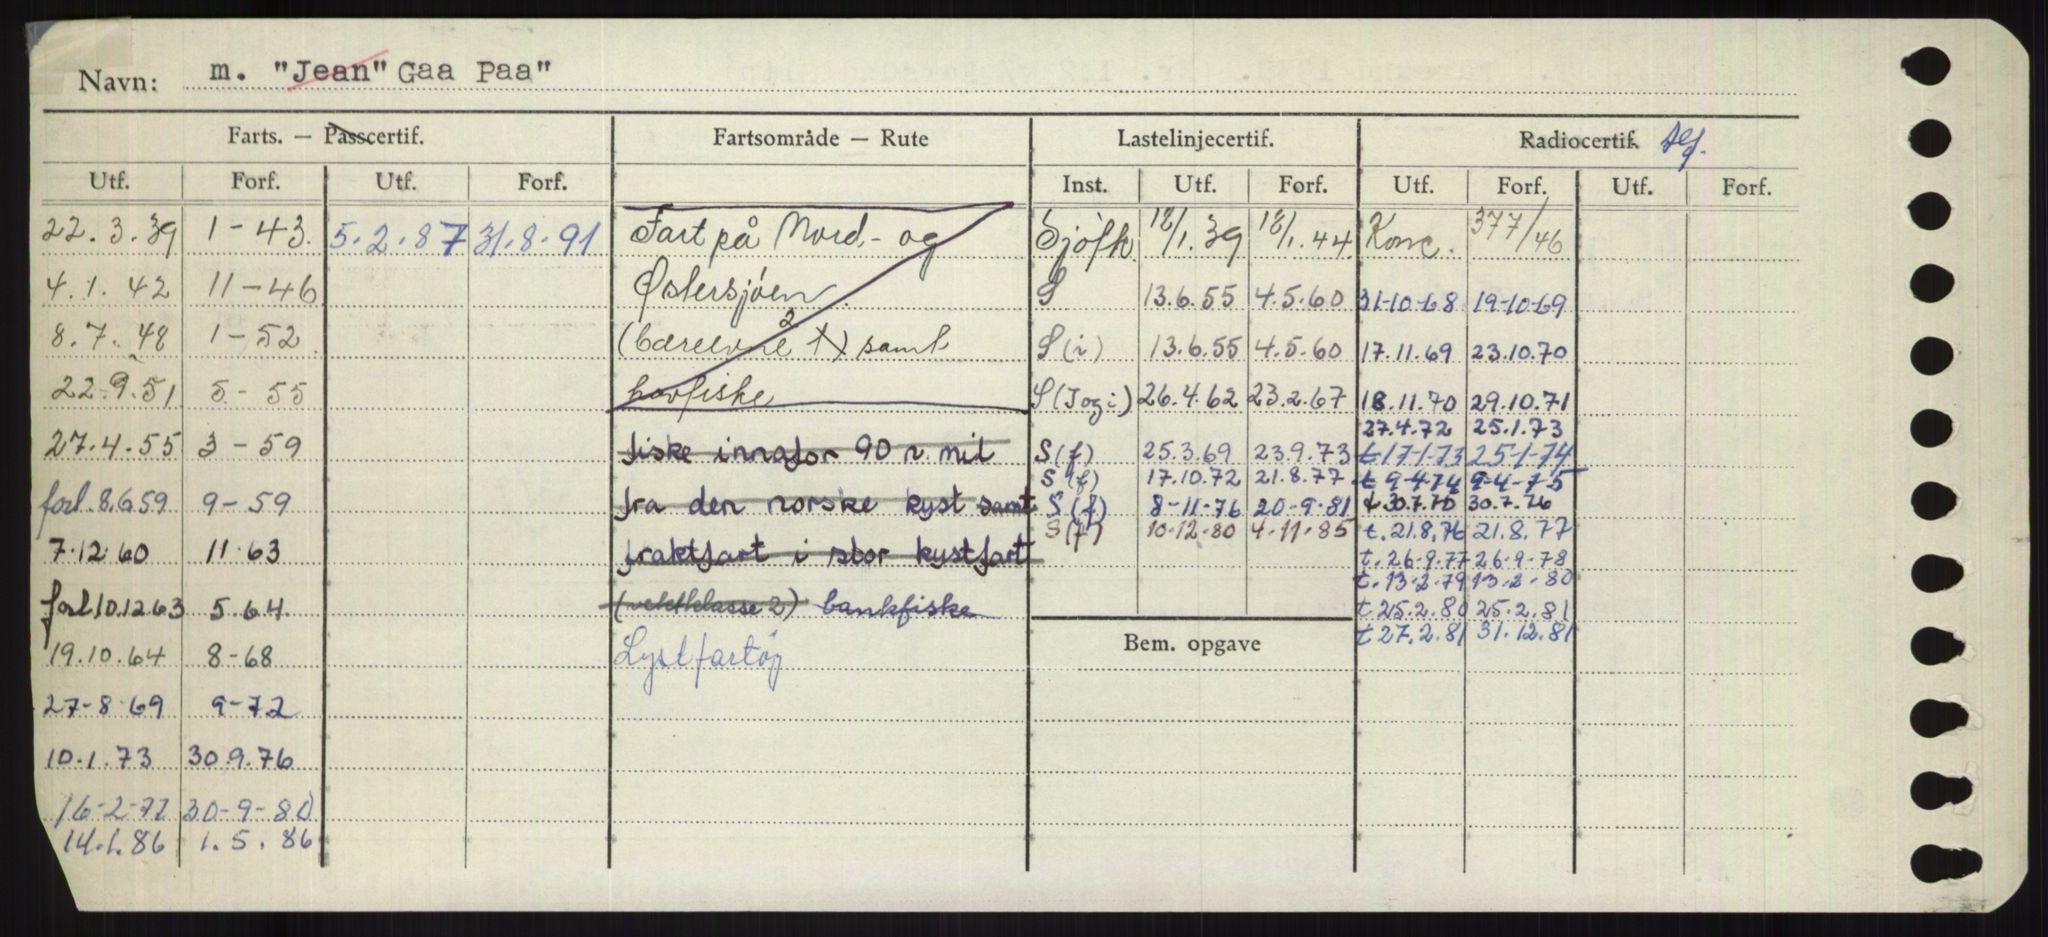 Navn: m. "Jean" Gaa Paa"
Farts. — Passcertif. Fartsområde — Rute Lastelinjecertif. Radiocertif.
Utf. Forf. Utf. Forf. Inst. Utf. Forf. Utf. Forf. Utf. Forf.
22.3.39 1-43. 5.2.87 31.8.91 Fart på Nord- og Sjöfk 18/1.39 18/1.44 Konv. 377/46
4.1.42 11-46 Østersjøen S 13.6.55 4.5.60 31-10-68 19-10-69
8.7.48 1-52 (bæreevne 2 t) samt S(i) 13.6.55 4.5.60 17.11.69 23.10.70
22.9.51 5-55 havfiske S(Jogi) 26.4.62 23.2.67 18.11.70 29.10.71
27.4.72 25.1.73
27.4.55 3-59 fiske innafor 90 n. mil S(f) 25.3.69 23.9.73 t 17-1-73 25-1-74
S(f) 17.10.72 21.8.77 t 9-4-74 9-4-75
forl. 8.6.59 9-59 fra den norske kyst samt S(f) 8-11-76 20-9-81 t 30.7.75 30.7.76
S(f) 10.12.80 4.11.85 t. 21.8.76 21.8.77
7.12.60 11.63 fraktfart i stor kystfart t. 26.9.77 26.9.78
t. 13.2.79 13.2.80
forl. 10.12.63 5.64 (vektklasse 2) bankfiske t 25.2.80 25.2.81
t 27.2.81 31.12.81
Bem. opgave
19.10.64 8-68 Lystfartøy
27-8-69 9-72
10.1.73 30.9.76
16-2-77 30-9-80
14.1.86 1.5.86